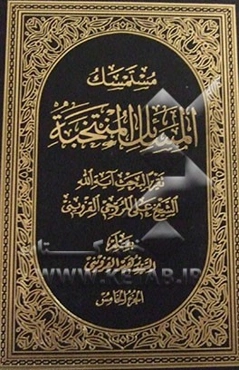 مستمسك
المسائل المنتخبة
تقرير لبحث آية الله
الشيخ علي المروجي القزويني
بقلم
السيد القزويني
الجزء الخامس